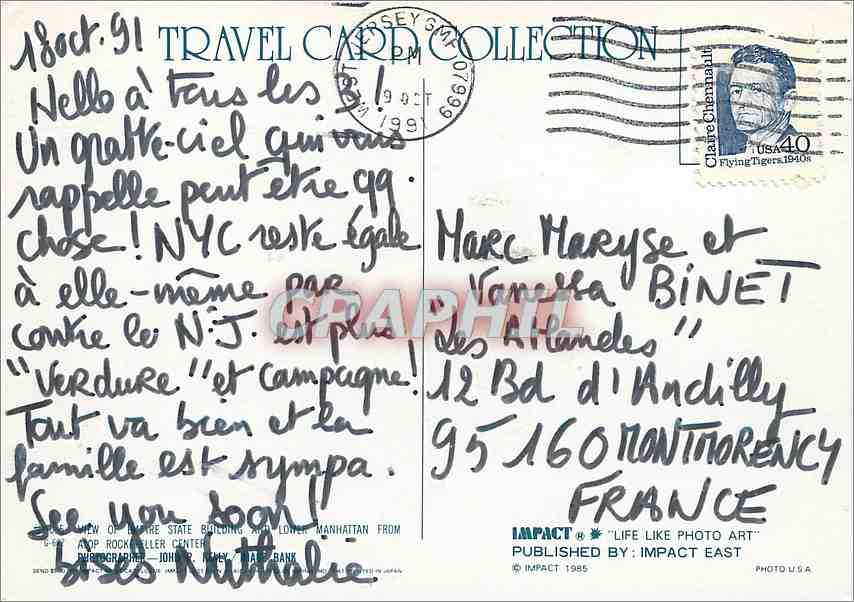 TRAVEL CARD COLLECTION
18 oct. 91
Hello à tous les 3 !
Un gratte-ciel qui vous
rappelle peut être qq.
chose! NYC reste égale
à elle-même par
contre le N.J. est plus
"verdure" et campagne!
Tout va bien et la
famille est sympa.
See you soon!
Bises Nathalie
VIEW OF EMPIRE STATE BUILDING AND LOWER MANHATTAN FROM
ATOP ROCKEFELLER CENTER
PHOTOGRAPHER—JOHN P. KELLY / IMAGE BANK
WEST JERSEY GMF 07999
PM
19 OCT
1991
Claire Chennault
USA 40
Flying Tigers, 1940s
Marc Maryse et
Vanessa BINET
"Les Allandes"
12 Bd d'Andilly
95160 MONTMORENCY
FRANCE
CPAPHIL
IMPACT ® "LIFE LIKE PHOTO ART"
PUBLISHED BY: IMPACT EAST
© IMPACT 1985
PHOTO U S A